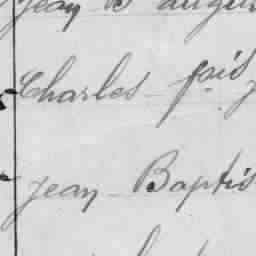 Jean B augu
Charles fais
Jean Baptis